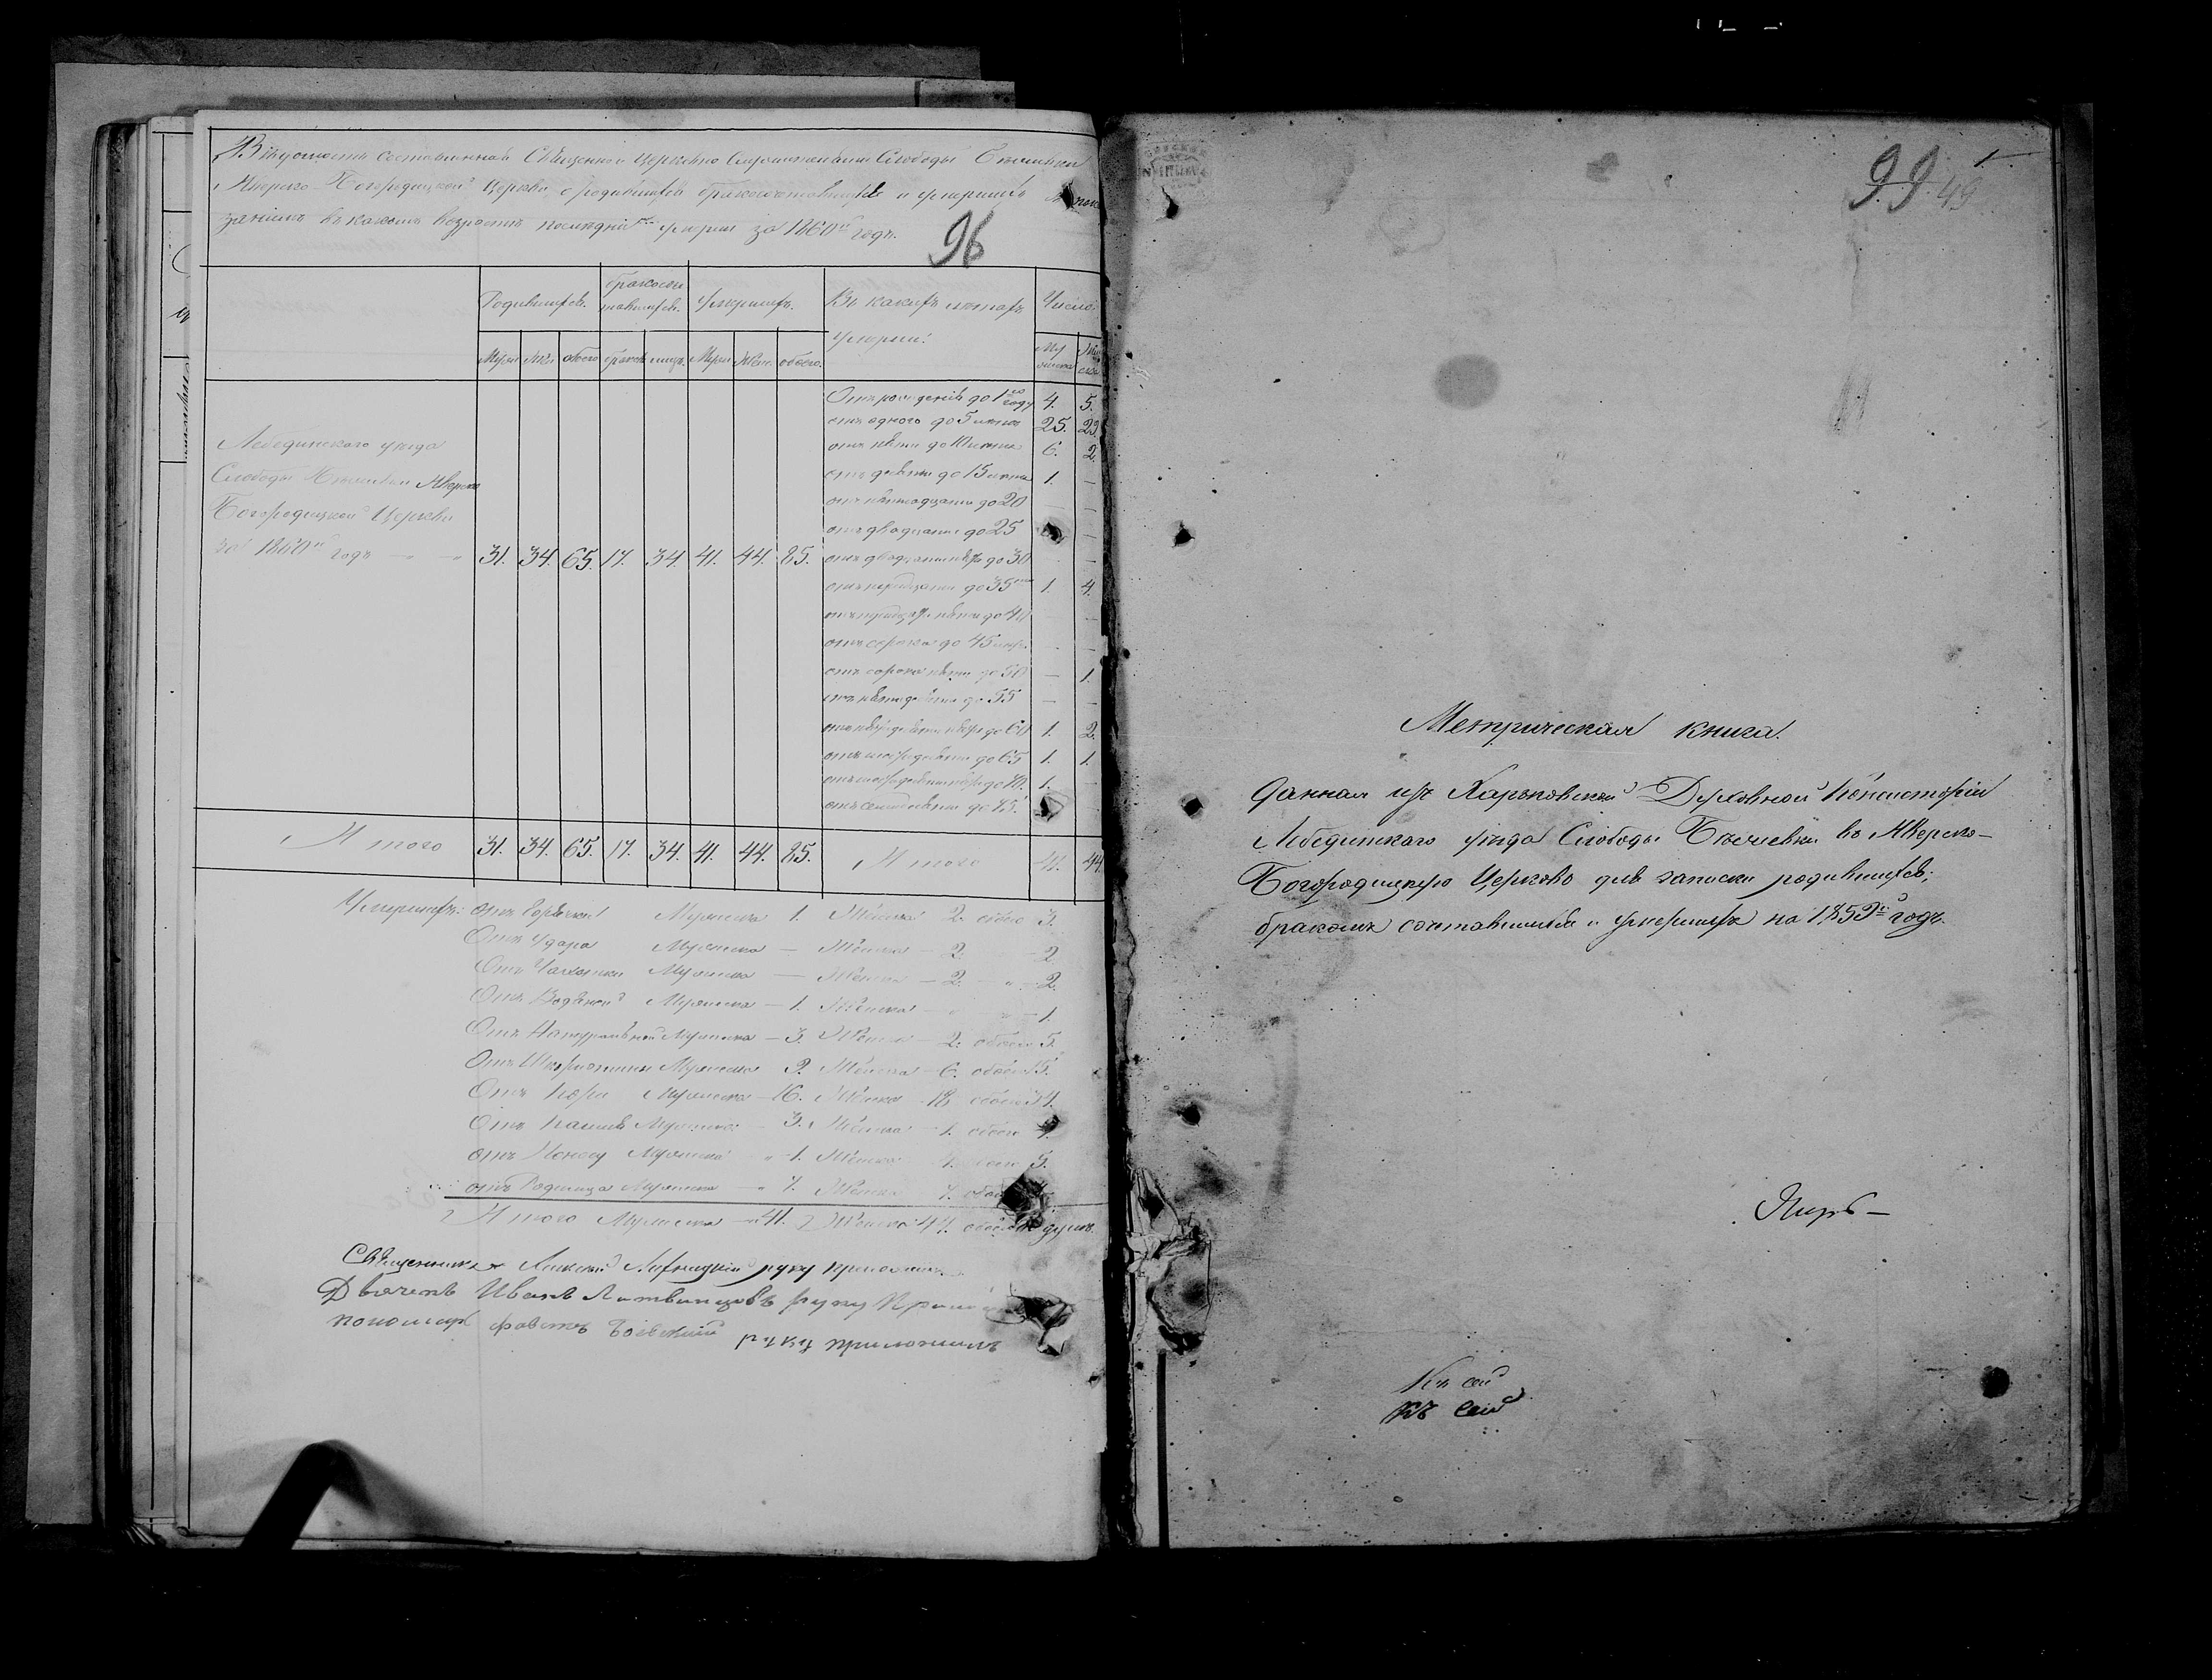 Вѣдомость составленная Священно и Церковно Служителями Слободы
Иверско-Богородицкой Церкви о родившихся бракосочетавшихся и умершихъ
занiемъ въ какомъ возрастѣ послѣднiе умерли за 1860й годъ.
96
Родившихся.
бракосоче
тавшихся.
Умершихъ.
Въ какихъ лѣтахъ
умерли:
Число:
Муж Жен обоего браковъ лицъ. Муж Жен. обоего.
Му
жеска
Отъ рожденiя до 1го году 4. 5.
отъ одного до 5 лѣтъ 25. 29
отъ пяти до 10 лѣтъ 6. 2.
отъ десяти до 15 лѣтъ 1. —
отъ пятнадцати до 20 —
отъ двадцати до 25 —
отъ двадцати пяти до 30 —
отъ тридцати до 35 1. 4.
отъ тридцати пяти до 40
отъ сорока до 45
отъ сорока пяти до 50 — 1.
отъ пятидесяти до 55 — —
отъ пятидесяти пяти до 60 1. 2.
отъ шестидесяти до 65 1. 1.
отъ шестидесяти пяти до 70. 1. —
отъ семидесяти до 75.
Лебединского уѣзда
Слободы Иверско
Богородицкой Церкви
за 1860й годъ — — 31. 34. 65. 17. 34. 41. 44. 85.
Итого 31. 34. 65. 17. 34. 41. 44. 85. Итого 41. 44
Умершихъ: отъ Горячки Мужеска 1. Женска 2. обоего 3.
Отъ Удара Мужеска — Женска — 2. — 2
Отъ Чахотки Мужеска — Женска — 2. — 2.
Отъ Водяной Мужеска — 1. Женска — 1.
Отъ Натуральной Мужеска — 3. Женска — 2. обоего 5.
Отъ Мужеска 9. Женска — 6. обоего 15.
Отъ Кори Мужеска — 16. Женска — 18 обоего 34.
Отъ Кашля Мужеска — 3. Женска — 1. обоего 4.
отъ Поносу Мужеска — 1. Женска 4. обоего 5.
отъ Мужеска — 7. Женска 7.
Итого Мужеска — 41. Женска 44. обоего душъ.
Священникъ руку приложилъ
Дьячекъ Иванъ Литвинцовъ руку
пономарь руку приложилъ
99. 49
1
Метрическая книга.
данная изъ Харьковской Духовной Консисторiи
Лебединскаго уѣзда Слободы въ Иверско-
Богородицкую Церковь для записки родившихся;
бракомъ сочетавшихся и умершихъ на 1859й годъ.
Къ сей
Къ сей